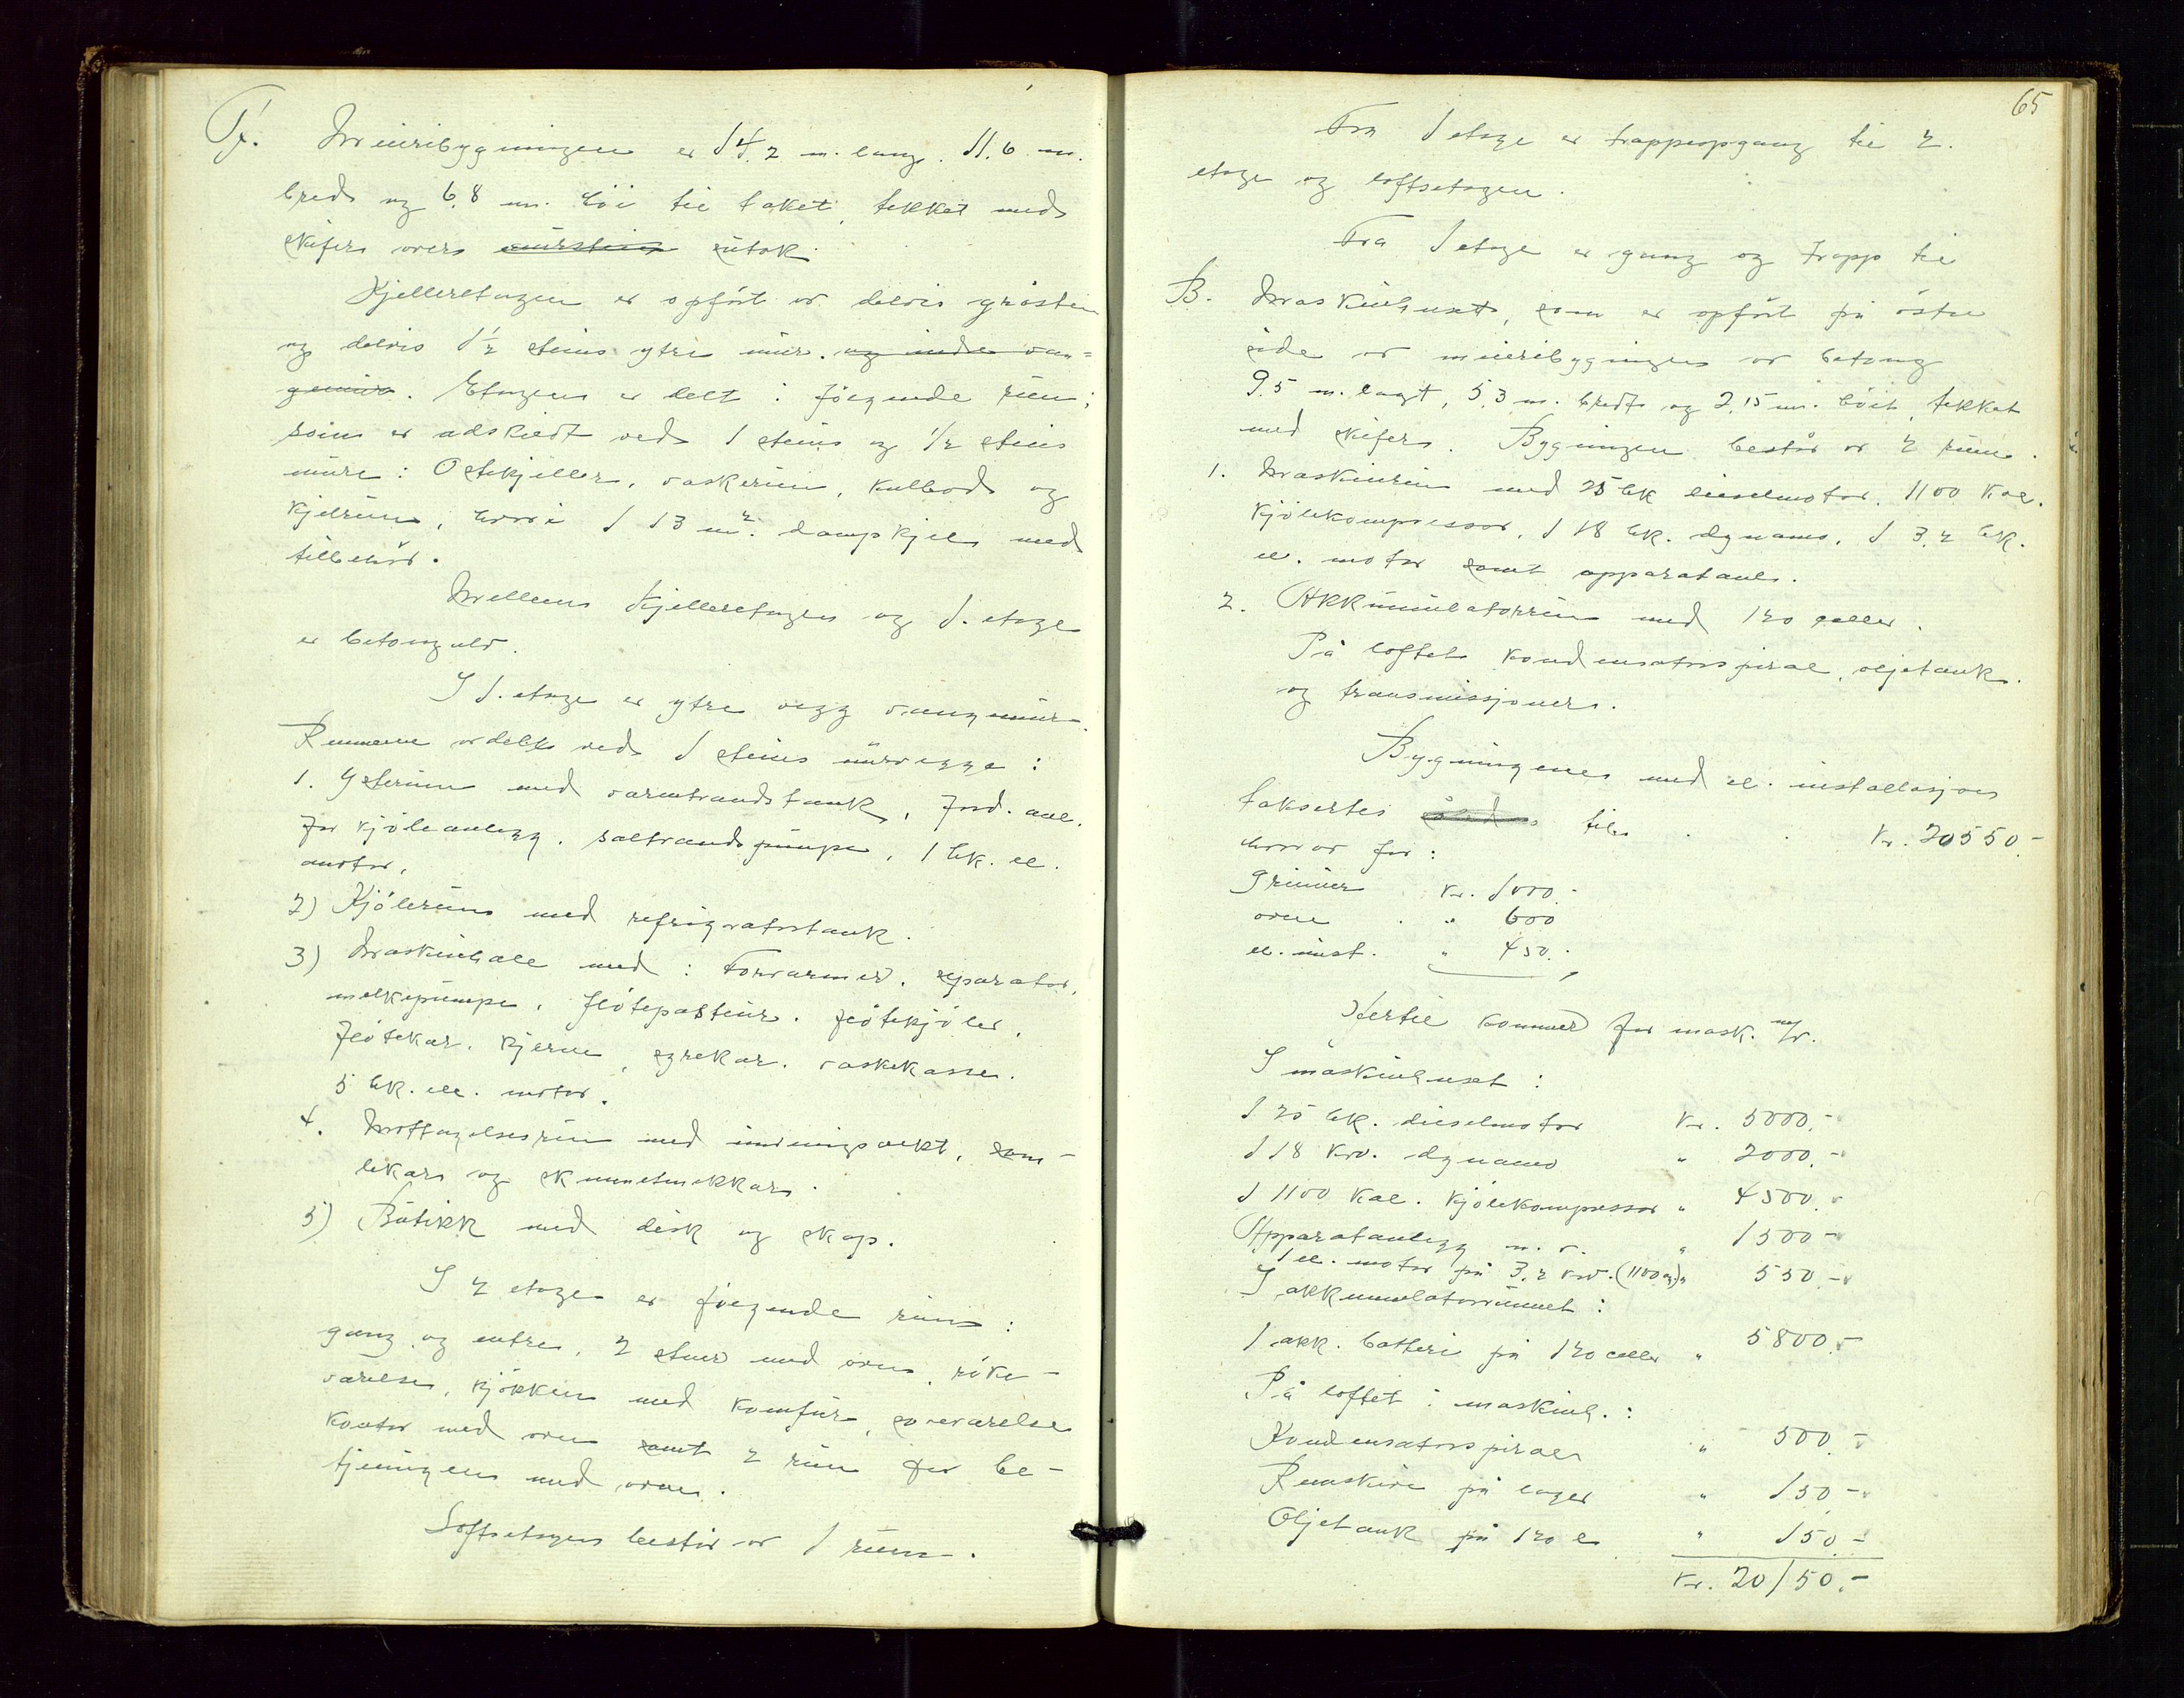 Tf. Meieribygningen er 14,2 m. lang. 11,6 m.
bred og 6,8 m. höi til taket, tekket med
skifer over murstein sutak.
Kjelleretagen er opfört av delvis gråsten
og delvis 1½ steins ytre mur. og indre van=
gemur. Etagen er delt i følgende rum;
som er adskiedt ved 1 steins og ½ steins
mure: Ostekjeller, vaskerum, kulbod og
kjelrum, hvori 1 13 m². dampkjel med
tilbehör.
Mellem kjelleretagen og 1. etage
er betonghvelv.
I 1. etage er ytre vegg vangmur.
Rummene avdelt ved 1 steins murvegge:
1. Ysterum med varmtvandstank, ford. anl.
for kjöleanlegg. saltvandspumpe, 1 hk. el.
motor.
2) Kjölerum med refrigratortank.
3) Maskinhall med: Forvarmer, separator,
melkepumpe, flötepasteur. flötekjöler,
flötekar. kjerne, syrekar. vaskekasse.
5 hk. el. motor.
4. Mottagelsesrum med innveiningsvekt, sam-
lekar og skummetmelkkar.
5) Butikk med disk og skap.
I 2 etage er følgende rum:
gang og entre, 2 stuer med ovn, röke-
værelse, kjökken med komfur, soveværelse
kontor med ovn samt 2 rum for be-
tjeningen med ovn.
Loftsetagen består av 1 rum.
65
Fra 1 etage er trappeopgang til 2.
etage og loftsetagen.
Fra 1 etage er gang og trapp til
B. Maskinhuset, som er opfört på östre
side av meieribygningen av betong
9,5 m. lagt, 5,3 m. bredt og 2,15 m. höit, tekket
med skifer. Bygningen består av 2 rum.
1. Maskinrum med 25 hk dieselmotor. 1100 kal.
kjölekompressor, 1 18 hk. dynamo, 1 3,2 hk.
el. motor samt apparatanl.
2. Akkumulatorrum med 120 celler.
På loftet kondensatorspiral, oljetank.
og transmissjoner.
Bygningene med el. installasjon
taksertes til . . kr. 20550.-
hvorav for:
Grunmur kr. 1000.-
ovne . " 600
el. inst. " 450.-
Hertil kommer for mask. m/v.
I maskinhuset:
1 25 hk. dieselmotor kr. 5000.-
1 18 kw. dynamo " 2000.-
1 1100 kal. kjölekompressor " 4500.-
Apparatanlegg m. v. " 1500-
1 el. motor på 3,2 kw. (1100 o) " 550.-
I akkumulatorrummet:
1 akk. batteri på 120 celler " 5800.-
På loftet i maskinh.:
Kondensatorspiral " 500.-
Remskive på lager " 150-
Oljetank på 120 l " 150.-
kr. 20150.-